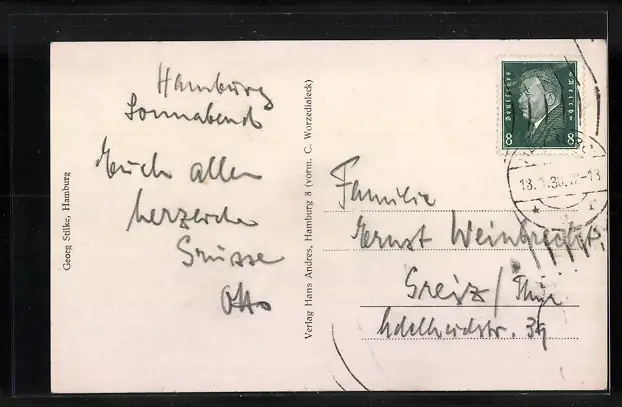 Hamburg
Sonnabend
Euch allen
herzliche
Grüsse
Otto
Georg Stilke, Hamburg
Verlag Hans Andres, Hamburg 8 (vorm. C. Worzedialeck)
Deutsches Reich
8 8
18.1.30.12-13
Familie
Ernst Weinbrecht,
Greiz / Thür
Adelheidstr. 39